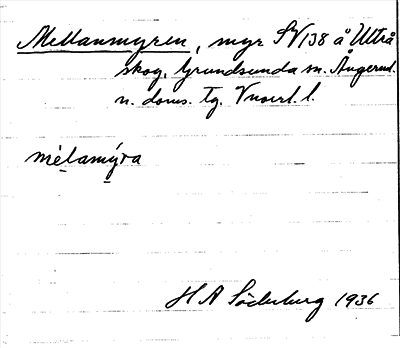 Mellanmyren, myr SV 138 å Utträ
skog, Grundsunda sn. Ångerml.
n. doms. tg. Vnorrl. l.
mèlamýra
H A Söderberg 1936